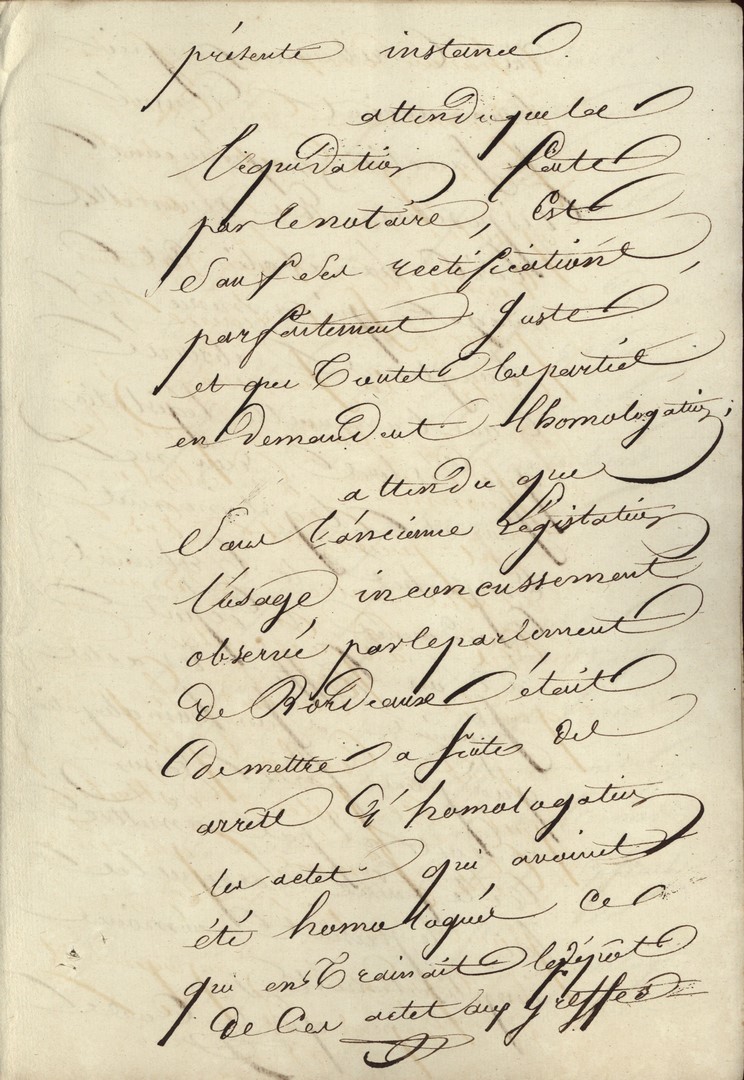 présente instance
attendu que la
liquidation faite
par le notaire, Est
Sauf Ses rectifications
parfaitement Juste
et que Toutes les parties
en Demandent l'homologation;
attendu que
Sous l'ancienne Législation
l'usage inconcussement
observé par le parlement
de Bordeaux était
de mettre a suite des
arrêts d'homologation
les actes qui avaient
été homologués ce
qui entrainait le dépôt
de Ces actes aux Greffes